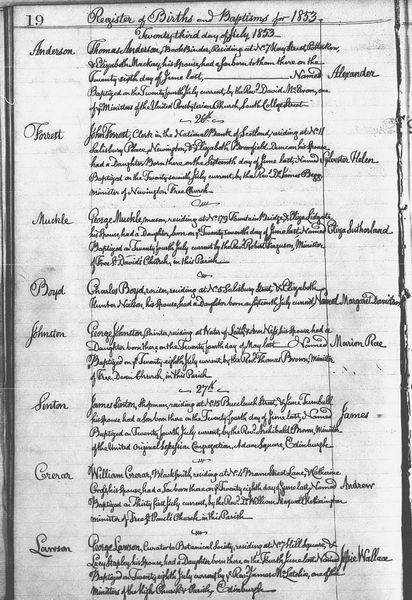 19 Register of Births and Baptisms for 1853.
Twenty third day of July 1853.
Anderson Thomas Anderson, Bookbinder, Residing at No 7 May Street,
& Elizabeth Mackay, his Spouse, had a Son born to them there on the
Twenty sixth day of June last, Named Alexander
Baptized on the Twenty fourth July current, by the Revd David McEwan, one
of ye Ministers of the United Presbyterian Church, South College Street
26th
Torrett John Torrett, Clerk in the National Bank of Scotland, residing at No 11
Salisbury Place, Newington, & Elizabeth Bromfield Duncan, his Spouse,
had a Daughter Born there, on the Sixteenth day of June last, Named Sylvester Helen
Baptized on the Twenty seventh July current, by the Revd Dr James Begg
minister of Newington Free Church
Muckle George Muckle, mason, residing at No 179 Fountain Bridge, & Eliza Lidgate
his Spouse, had a Daughter, born on ye Twenty seventh day of June last, Named Eliza Sutherland
Baptized on Twenty fourth July current, by the Revd Robert Ferguson, Minister
of Free St Davids Church, in this Parish
Boyd Charles Boyd, writer, residing at No 5 Salisbury Street, & Elizabeth
Hunter Neilson, his Spouse, had a Daughter born on fifteenth July current, Named Margaret Davidson
Johnston George Johnston, Painter, residing at Water of Leith, & Ann Ness, his Spouse, had a
Daughter born there on the Twenty fourth day of May last Named Marion Rae
Baptized on ye Twenty eighth July current, by the Revd Thomas Brown, Minister
of Free Dean Church, in this Parish
27th
Sinton James Sinton, shopman, residing at No 15 Buccleuch Street, & Jane Turnbull
his Spouse, had a Son born there on the Twenty fourth day of June last, & Named James
Baptized on Twenty fourth July current, by the Revd Archibald Brown, Minister
of the United Original Secession Congregation, Adam Square, Edinburgh
Crerar William Crerar, Blacksmith, residing at No 4 Street Lane, & Catherine
his Spouse, had a Son born there on ye Twenty eighth day of June last, Named Andrew
Baptized on Thirty first July, current, by the Revd Dr William
minister of Free St Paul's Church, in this Parish
Lawson George Lawson, Curator to Botanical Society, residing at No 7 Hill Square, &
Lucy Stapley, his Spouse, had a Daughter born there, on the Fourth June last, Named Jessie Wallace
Baptized on Twenty eighth July current by ye Revd James, one of the
Ministers of the High Church & Parish, Edinburgh